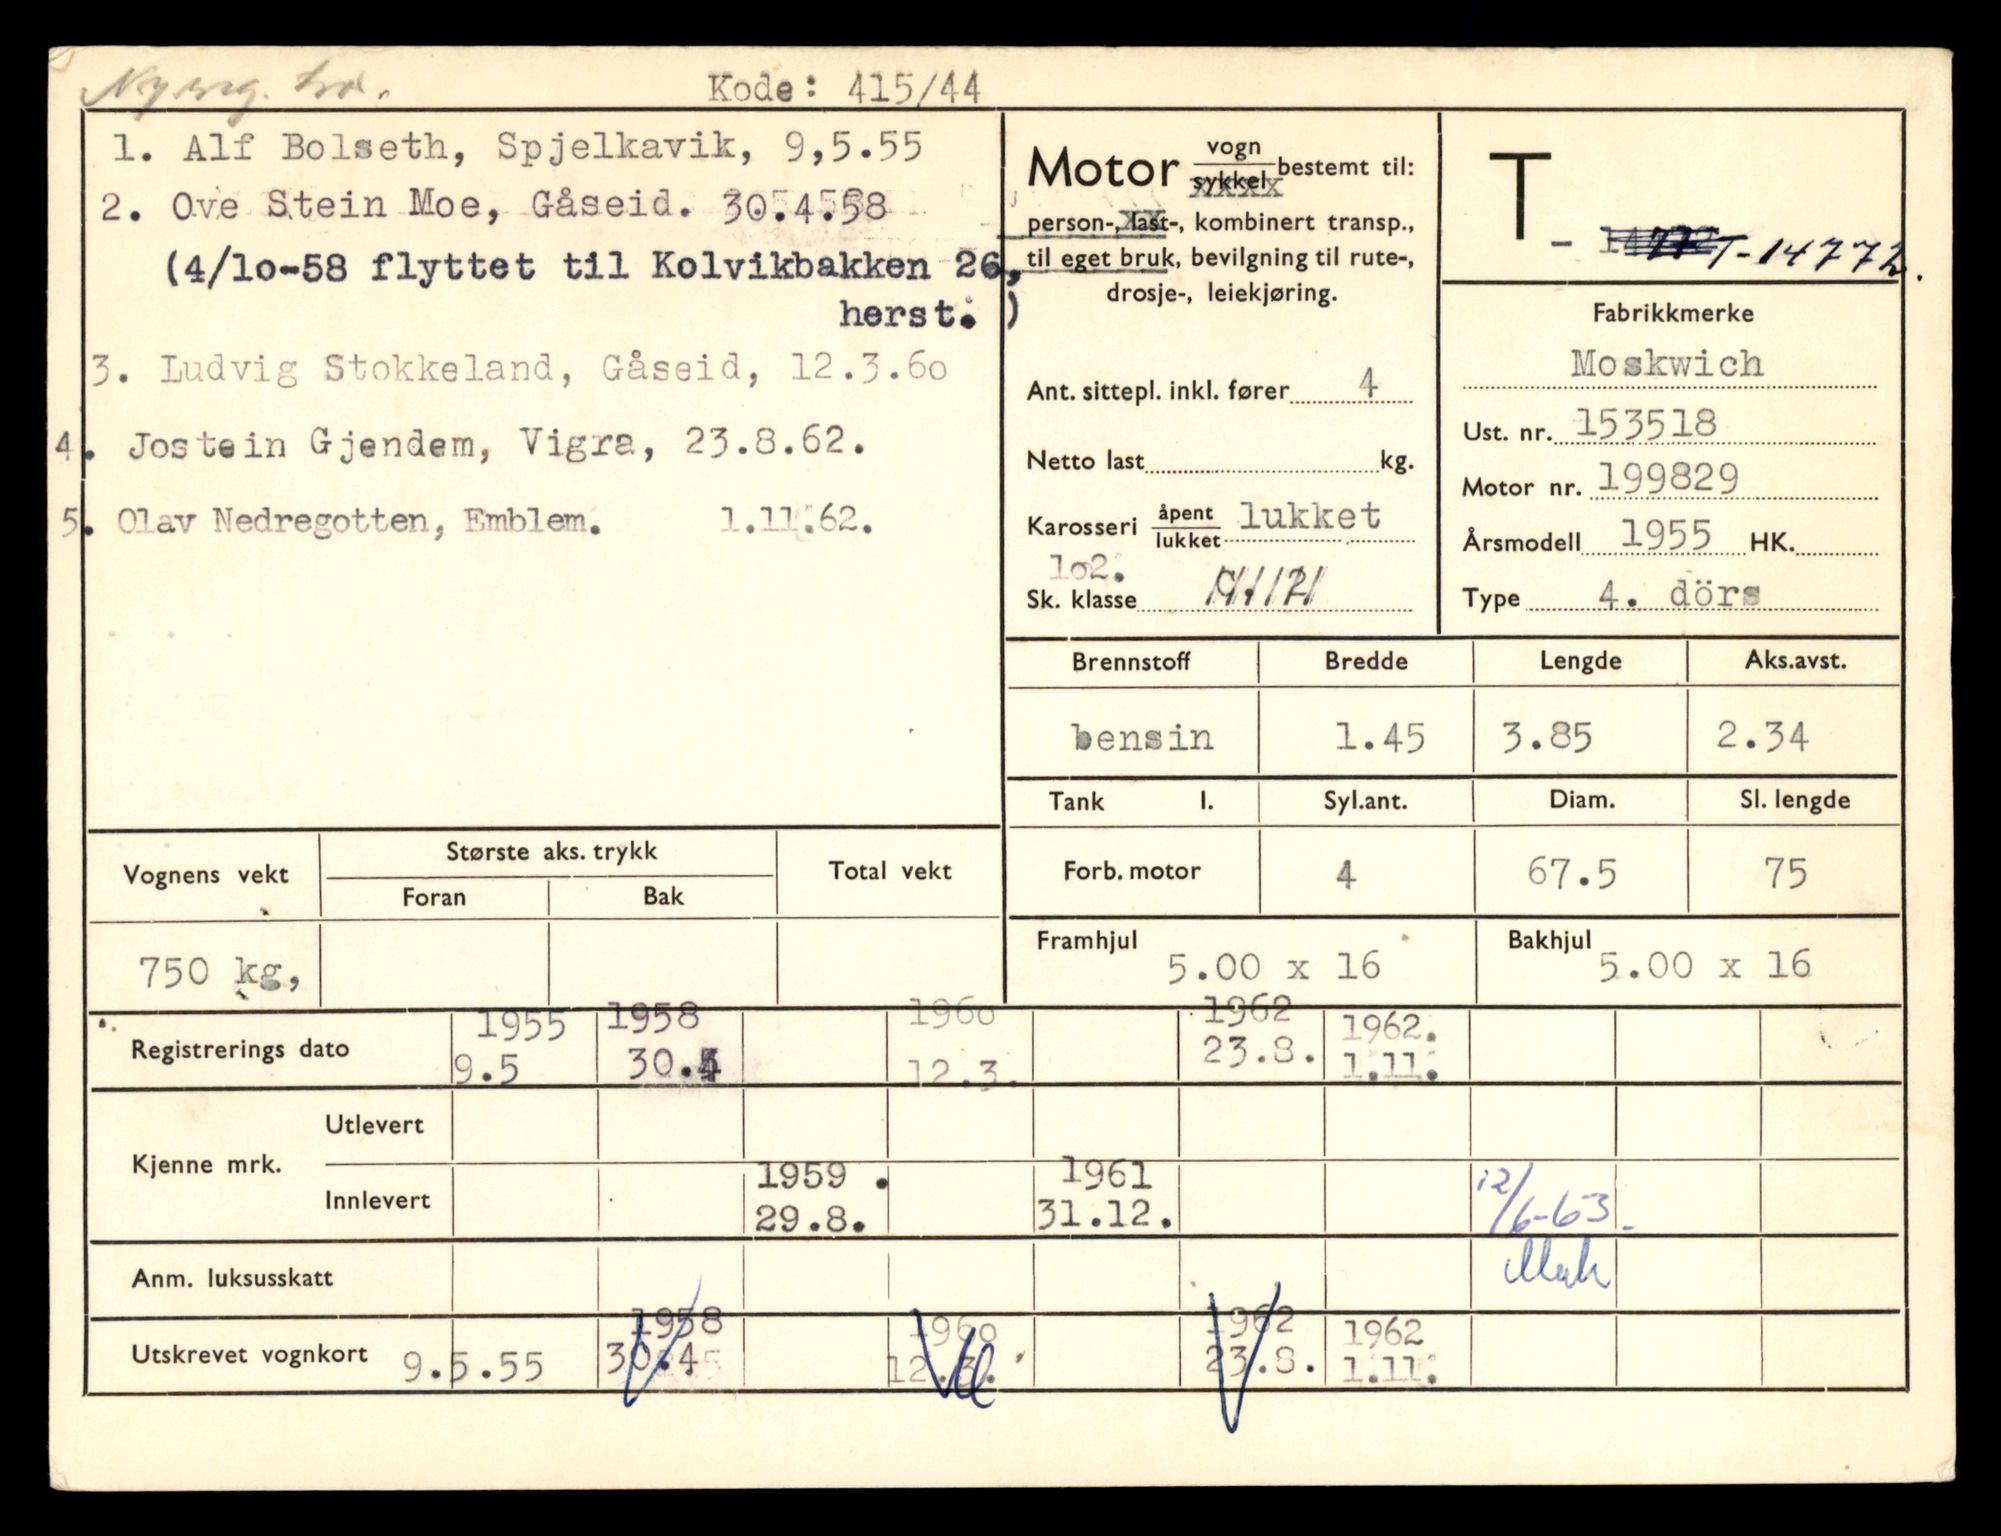 Kode: 415/44
1. Alf Bolseth, Spjelkavik, 9,5.55
2. Ove Stein Moe, Gåseid. 30.4.58
(4/1o-58 flyttet til Kolvikbakken 26,
herst. )
3. Ludvig Stokkeland, Gåseid, 12.3.6o
4. Jostein Gjendem, Vigra, 23.8.62.
5. Olav Nedregotten, Emblem. 1.11.62.
Motor vogn sykkel bestemt til:
person-, last-, kombinert transp.,
til eget bruk, bevilgning til rute-,
drosje-, leiekjøring.
Ant. sittepl. inkl. fører 4
Netto last kg.
Karosseri åpent lukket lukket
1o2.
Sk. klasse
T
- T-14772.
Fabrikkmerke
Moskwich
Ust. nr. 153518
Motor nr. 199829
Årsmodell 1955 HK.
Type 4. dörs
Brennstoff Bredde Lengde Aks.avst.
bensin 1.45 3.85 2.34
Tank l. Syl.ant. Diam. Sl. lengde
Forb. motor 4 67.5 75
Framhjul 5.00 x 16 Bakhjul 5.00 x 16
Vognens vekt Største aks. trykk Total vekt
Foran Bak
750 kg,
1955 1958 196o 1962 1962.
Registrerings dato 9.5 30.4 12.3. 23.8. 1.11.
Kjenne mrk. Utlevert
Innlevert 1959. 1961 12/6-63.
29.8. 31.12.
Anm. luksusskatt
1958 196o 1962 1962
Utskrevet vognkort 9.5.55 30.4 12.3. 23.8. 1.11.